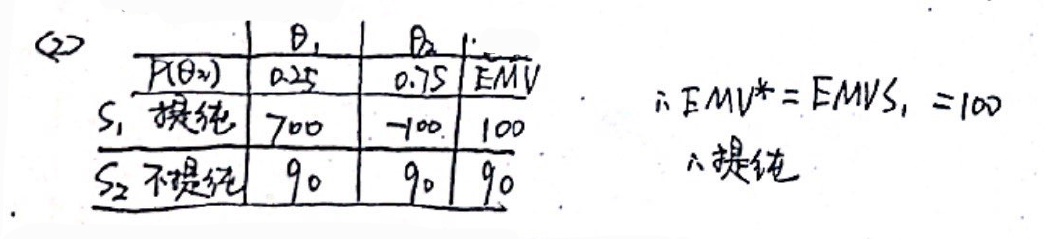 (2)
θ₁ θ₂
P(θᵢ) 0.25 0.75 EMV
S₁ 提纯 700 -100 100
S₂ 不提纯 90 90 90
∴ EMV* = EMVS₁ = 100
∴ 提纯